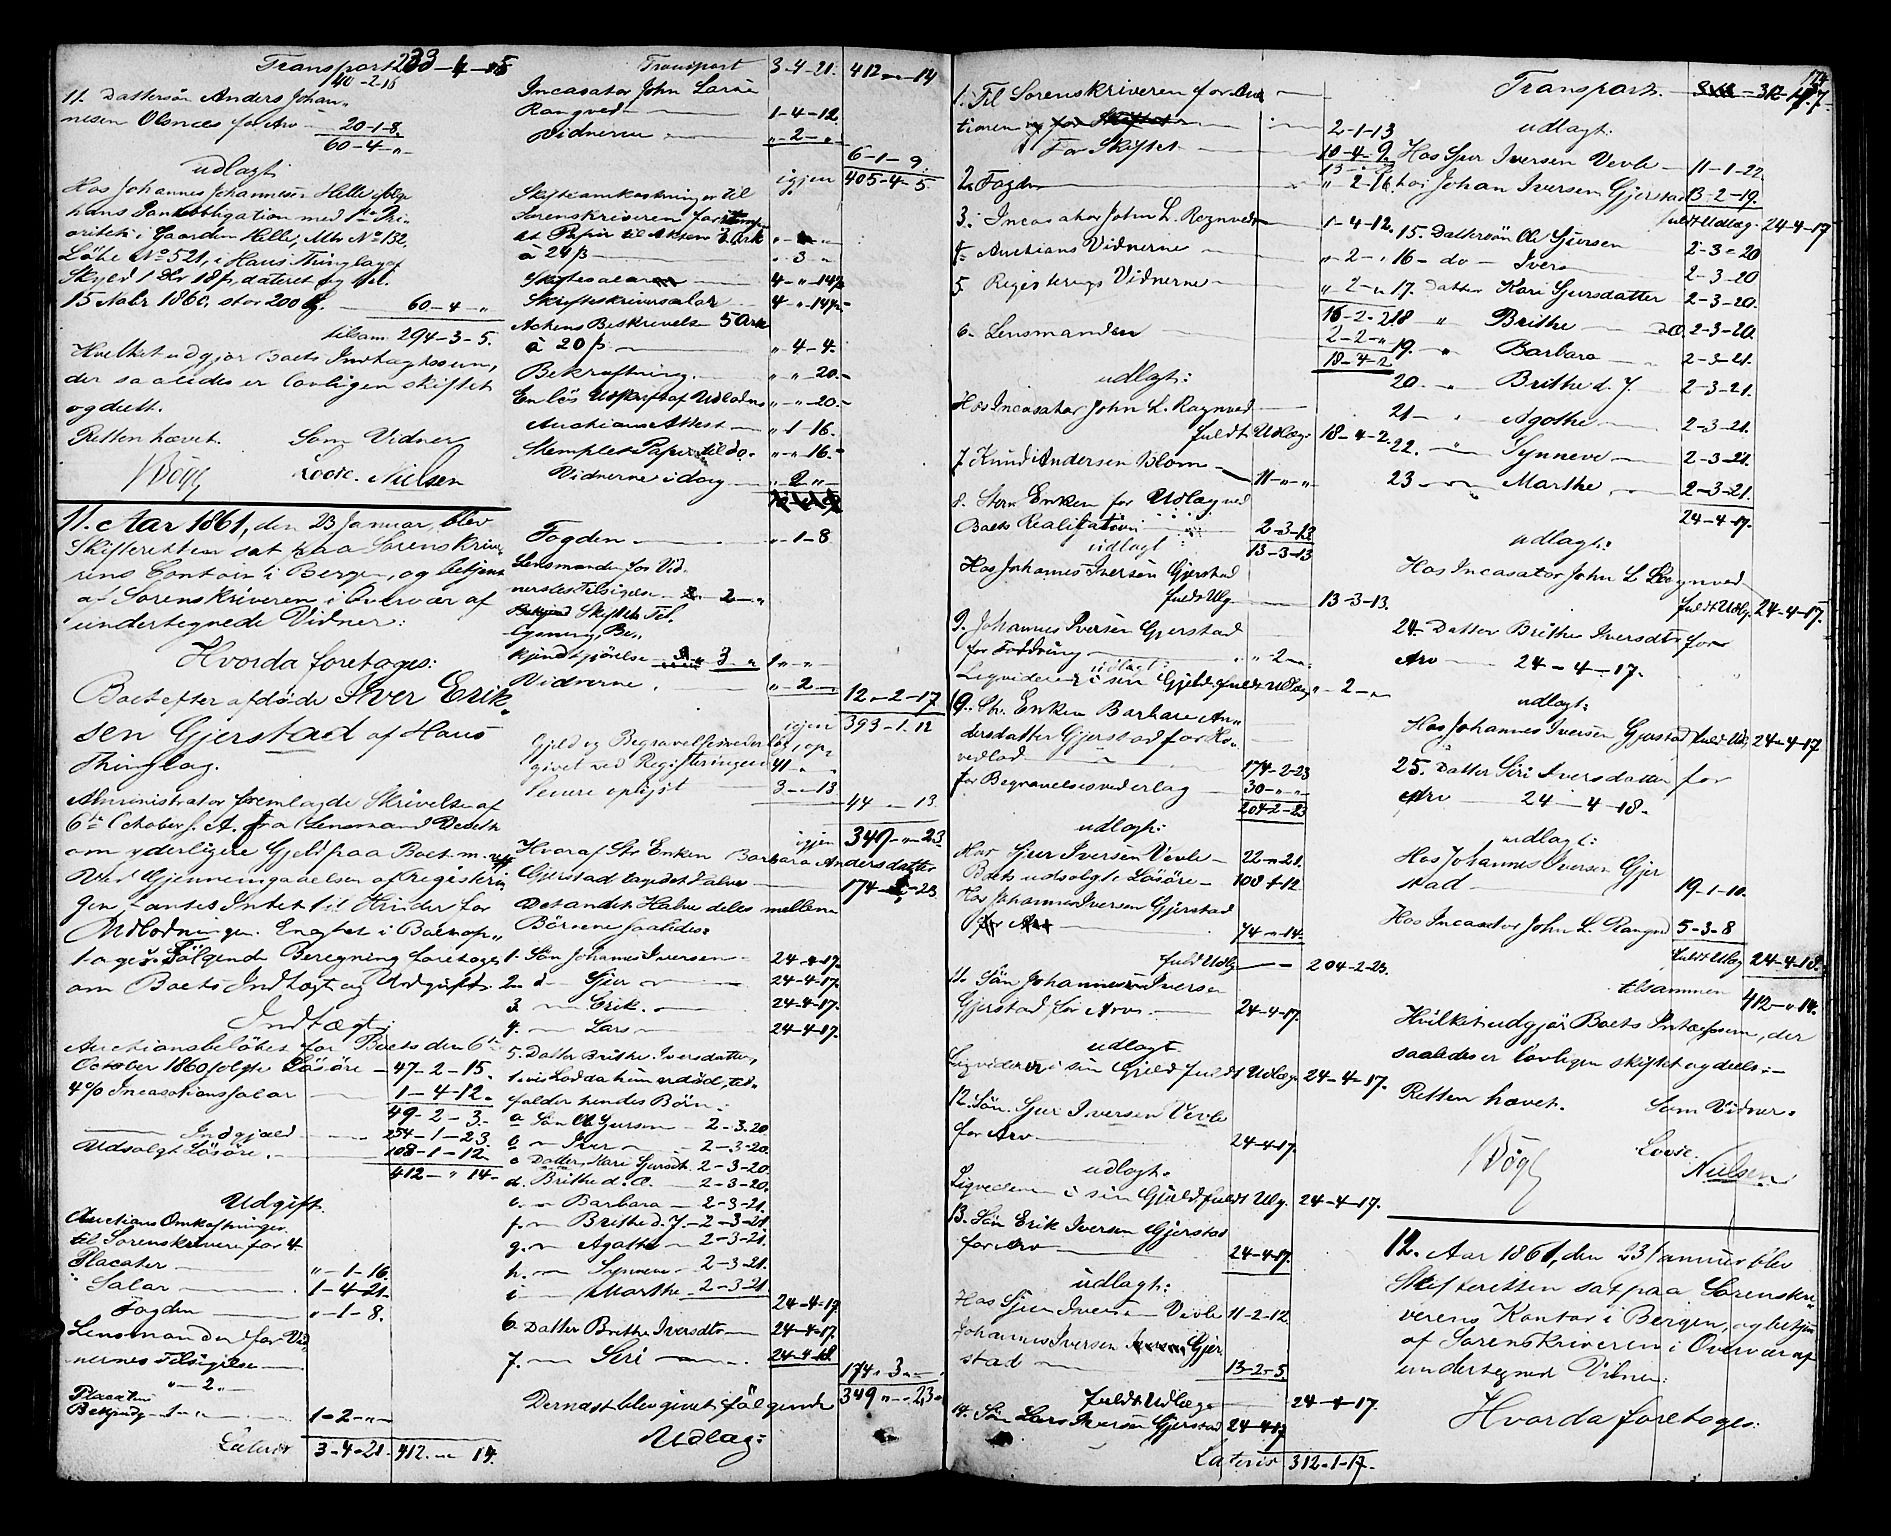 Transport 233-4-5
40-2-16
11. Dattersön Anders Johan-
nesen Olsnæs for Arv 20-1-8.
60-4-"
udlagt
Hos Johannes Johannesen Helle ifølge
hans Panteobligation med 1ste Pri-
oritet i Gaarden Helle, Mtr No 132.
Löbe No 521, i Haus Thinglag af
Skyld 1 Dlr 18 ß, dateret og tgl.
15 Nobr 1860, stor 200 60-4-"
tilsam 294-3-5.
Hvilket udgjør Boets Indtægtssum,
der saaledes er lovligen skiftet
og deelt.
Retten hævet. Som Vidner
Nielsen
11. Aar 1861, den 23 Januar, blev
Skifteretten sat paa Sorenskrive-
rens Contoir i Bergen, og betjent
af Sorenskriveren i Overvær af
undertegnede Vidner:
Hvorda foretoges:
Boet efter afdøde Iver Erik-
sen Gjerstad af Haus
Thinglag.
Administrator fremlagde Skrivelse af
6te October f. A. fra Lensmand
om yderligere Gjeld paa Boet m. v.
Ved Gjennemgaaelsen af Registerin
gen antoges Intet til Hinder for
Udlodningen. Enighed i Boet op-
toges. Følgende Beregning foretoges
om Boets Indtægt og Udgift.
Indtægt:
Auctionsbeløbet for Boets den 6te
October 1860 solgte Lösöre 47-2-15.
4% Incasationssalar 1-4-12.
49-2-3.
Indgjæld 254-1-23.
Udsolgt Lösöre. 108-1-12.
412-"14-
Udgift.
Auctions Omkostninger
til Sorenskriveren for 4
Placater "-1-16.
Salar 1-4-21.
Fogden "-1-8.
Lensmanden for Vid-
nernes Tilsigelse
"-2-
Placaters
Bekjendtg. 1-2-"-
Lateris 3-4-21. 412-"-14.
Transport 3-4-21. 412-"-14
Incasator John Larsen
Rangved 1-4-12.
Vidnerne "-2-"
6-1-9.
igjen 405-4-5.
Skifteomkostninger til
Sorenskriveren for Stemp-
let Papir til Akten 3 Ark
à 24 ß "-3-"
Skiftesalar 4-"-14½
Skifteskriversalar 4-"-14½
Actens Beskrivelse 5 Ark
à 20 ß "4-4.
Bekræftning. "-"-20.
En løs Udskrift af Udlodn. "-"-20.
Auctions Attest "-1-16.
Stemplet Papir til do. "-"-16.
Vidnerne idag ". 2 "-
Fogden "-1-8
Lensmanden for Vid-
nernes Tilsigelse 2-"
Skiftets Til-
lysning, Be-
kjendtgjørelse 3 " 1"-"-
Vidnerne. "-2-"
12-2-17.
igjen 393-1-12
Gjeld og Begravelsesvederlag, op-
givet ved Registreringen 41-"-"
senere opløst 3-"-13
44-"-13.
igjen 349-"-23.
Hvoraf Str. Enken Barbara Andersdatter
Gjerstad tager det Halve 174-2-23.
Det andet Halve deles mellem
Börnene saaledes:
1. Sön Johannes Iversen 24-4-17.
2. d- Sjur 24-4-17.
3. Erik 24-4-17.
4. Lars 24-4-17.
5. Datter Brithe Iversdatter,
hvis Lod da hun er död, til-
falder hendes Börn:
a Sön Ole Sjursen 2-3-20.
b Iver 2-3-20.
c Datter Kari Sjursdt. 2-3-20.
d. Brithe d. Æ. 2-3-20.
e. Barbara 2-3-21.
f. Brithe d. Y. 2-3-21.
g. Agathe 2-3-21.
h. Synneve 2-3-21.
i Marthe 2-3-21
24-4-17.
6. Datter Brithe Iversdtr 24-4-17.
7. Siri 24-4-18.
174-3-"-
Dernæst blev givet følgende 349-"-23
Udlæg:
1. Til Sorenskriveren for Auc-
tionen 2-1-13
For Skiftet 10-4-9.
2. Fogden "2-16
3. Incasator John L. Rognved 1-4-12.
4. Auctions Vidnerne "-2-"
5. Registrerings Vidnerne "2-"
16-2-2
6. Lensmanden 2-2-"
18-4-2.
udlagt:
Hos Incasator John L. Rognved
fuldt Udlæg 18-4-2.
7. Knud Andersen Blom 11-"-"
8. Sterv. Enken for Udlæg ved
Boets Realisation 2-3-13
udlagt: 13-3-13
Hos Johannes Iversen Gjerstad
fuldt Udlg. 13-3-13.
9. Johannes Iversen Gjerstad
for Fordring "-2-"
udlagt:
Ligviderer i sin Gjeld fuldt Udlæg "-2-"
10. Str. Enken Barbara An-
dersdatter Gjerstad for Ho-
vedlod 174-2-23
for Begravelsesvederlag 30-"-"
204-2-23
udlagt:
Hos Sjur Iversen Vevle 22-"-21.
Boets udsolgte Lösöre 108-1-12
Hos Johannes Iversen Gjerstad
74-"-14.
fuldt Udlg. 204-2-23.
11. Sön Johannes Iversen
Gjerstad for Arv. 24-4-17.
udlagt
Ligviderer i sin Gjeld fuldt Udlæg 24-4-17.
12. Sön Sjur Iversen Vevle
for Arv 24-4-17.
udlagt.
Ligviderer i sin Gjeld fuldt Ulg. 24-4-17.
13. Sön Erik Iversen Gjerstad
for Arv 24-4-17.
udlagt:
Hos Sjur Iversen Vevle 11-2-12
Johannes Iversen Gjer-
stad 13-2-5.
fuldt Udlæg 24-4-17.
14. Sön Lars Iversen Gjerstad 24-4-17
Lateris 312-1-17.
174
Transport 312-1-17.
udlagt:
Hos Sjur Iversen Vevle 11-1-22.
hos Johan Iversen Gjerstad 13-2-19.
fuldt Udlæg 24-4-17
15. Dattersön Ole Sjursen 2-3-20
16 - do - Iver 2-3-20
17. Datter Kari Sjursdatter 2-3-20.
18 " Brithe d. Æ. 2-3-20.
19. " Barbara 2-3-21.
20. " Brithe d. Y. 2-3-21.
21 " Agathe 2-3-21.
22. " Synneve 2-3-21.
23 Marthe 2-3-21.
24-4-17.
udlagt:
Hos Incasator John L. Rognved
fuldt Udlg. 24-4-17.
24. Datter Brithe Iversdtr for
Arv 24-4-17.
udlagt:
Hos Johannes Iversen Gjerstad fuldt Udlg 24-4-17
25. Datter Siri Iversdatter for
Arv 24-4-18.
udlagt:
Hos Johannes Iversen Gjer
stad 19-1-10.
Hos Incasator John L. Rangved 5-3-8
fuldt Udlg 24-4-18.
tilsammen 412-"-14.
Hvilket udgjør Boets Indtægtssum, der
saaledes er lovligen skiftet og deelt.-
Retten hævet. Som Vidner.
Nielsen
12. Aar 1861, den 23 Januar blev
Skifteretten sat paa Sorenskri-
verens Kontor i Bergen, og betjen
af Sorenskriveren i Overvær af
undertegnede Vidner:
Hvorda foretoges: